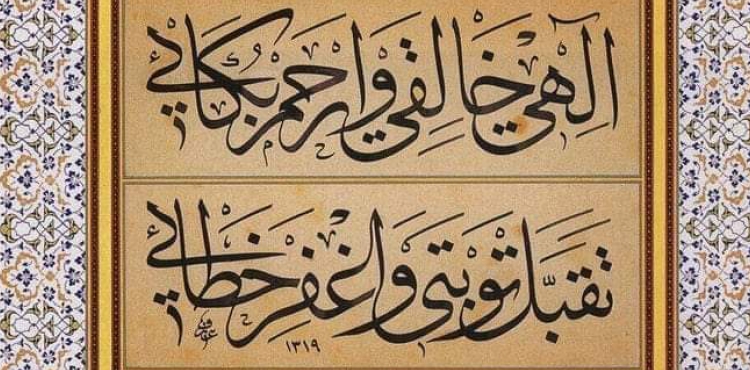 اِلٰهِي خَالِقِي وَارْحَمْ بُكَائِي
تَقَبَّلْ تَوْبَتِي وَاغْفِرْ خَطَائِي
١٣١٩